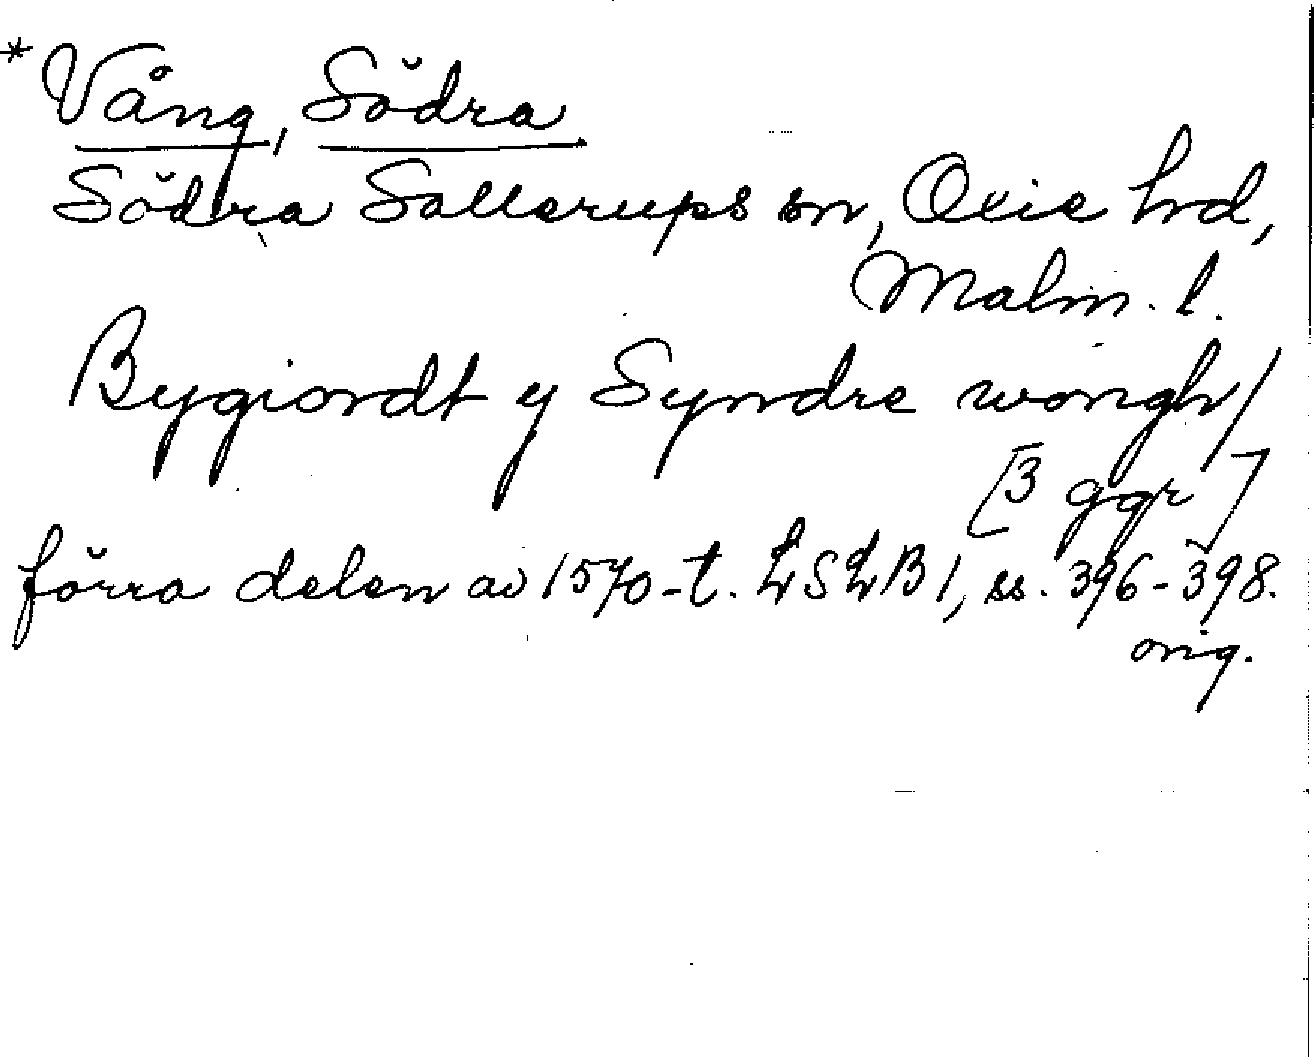 *Vång, Södra
Södra Sallerups sn, Oxie hrd,
Malm. l.
Bygiordt y Syndre wongh/
[3 ggr]
förra delen av 1570-t. LSLB 1, ss. 396-398.
orig.